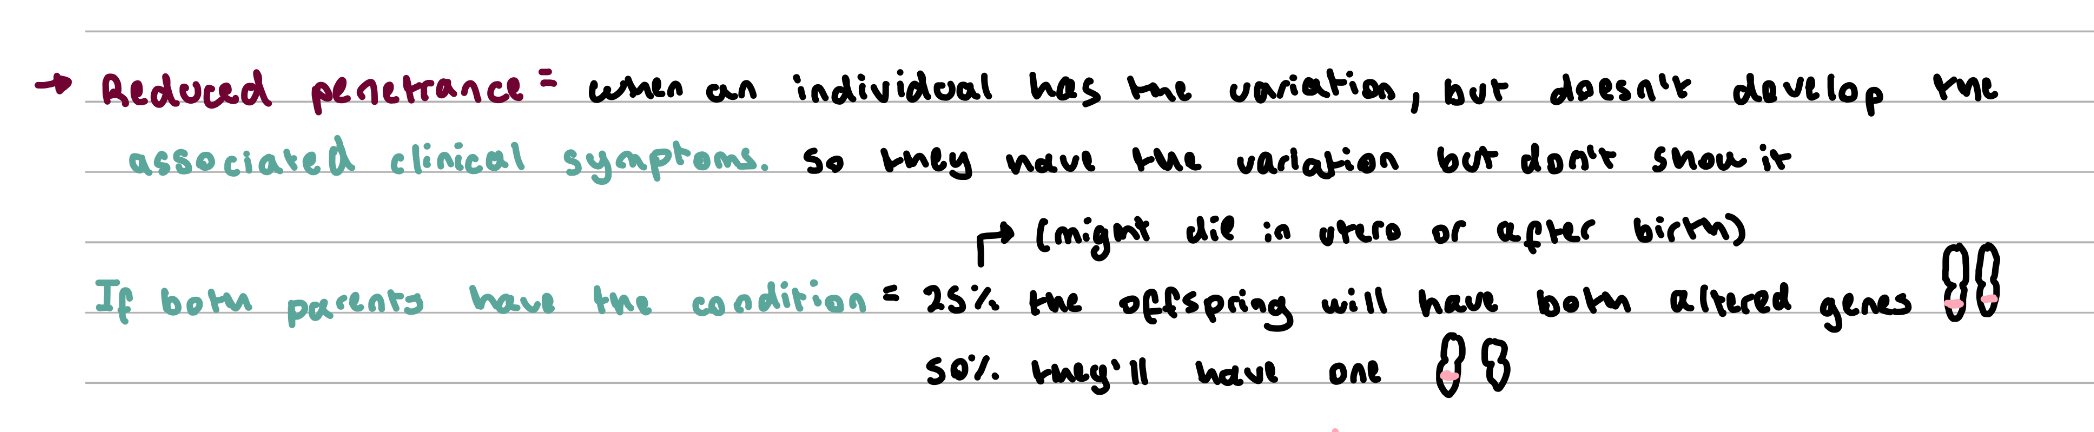 → Reduced penetrance = when an individual has the variation, but doesn't develop the
associated clinical symptoms. so they have the variation but don't show it
(might die in utero or after birth)
If both parents have the condition = 25% the offspring will have both altered genes
50% they'll have one